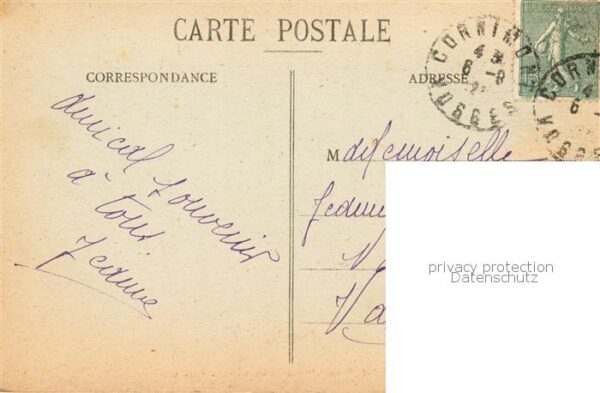 CARTE POSTALE
CORRESPONDANCE
ADRESSE
REPUBLIQUE FRANÇAISE
15
CORNIMONT
4
6 -8
VOSGES
CORNI
4
6
VOSGES
amical souvenir
à tous
Jeanne
Mademoiselle
privacy protection
Datenschutz